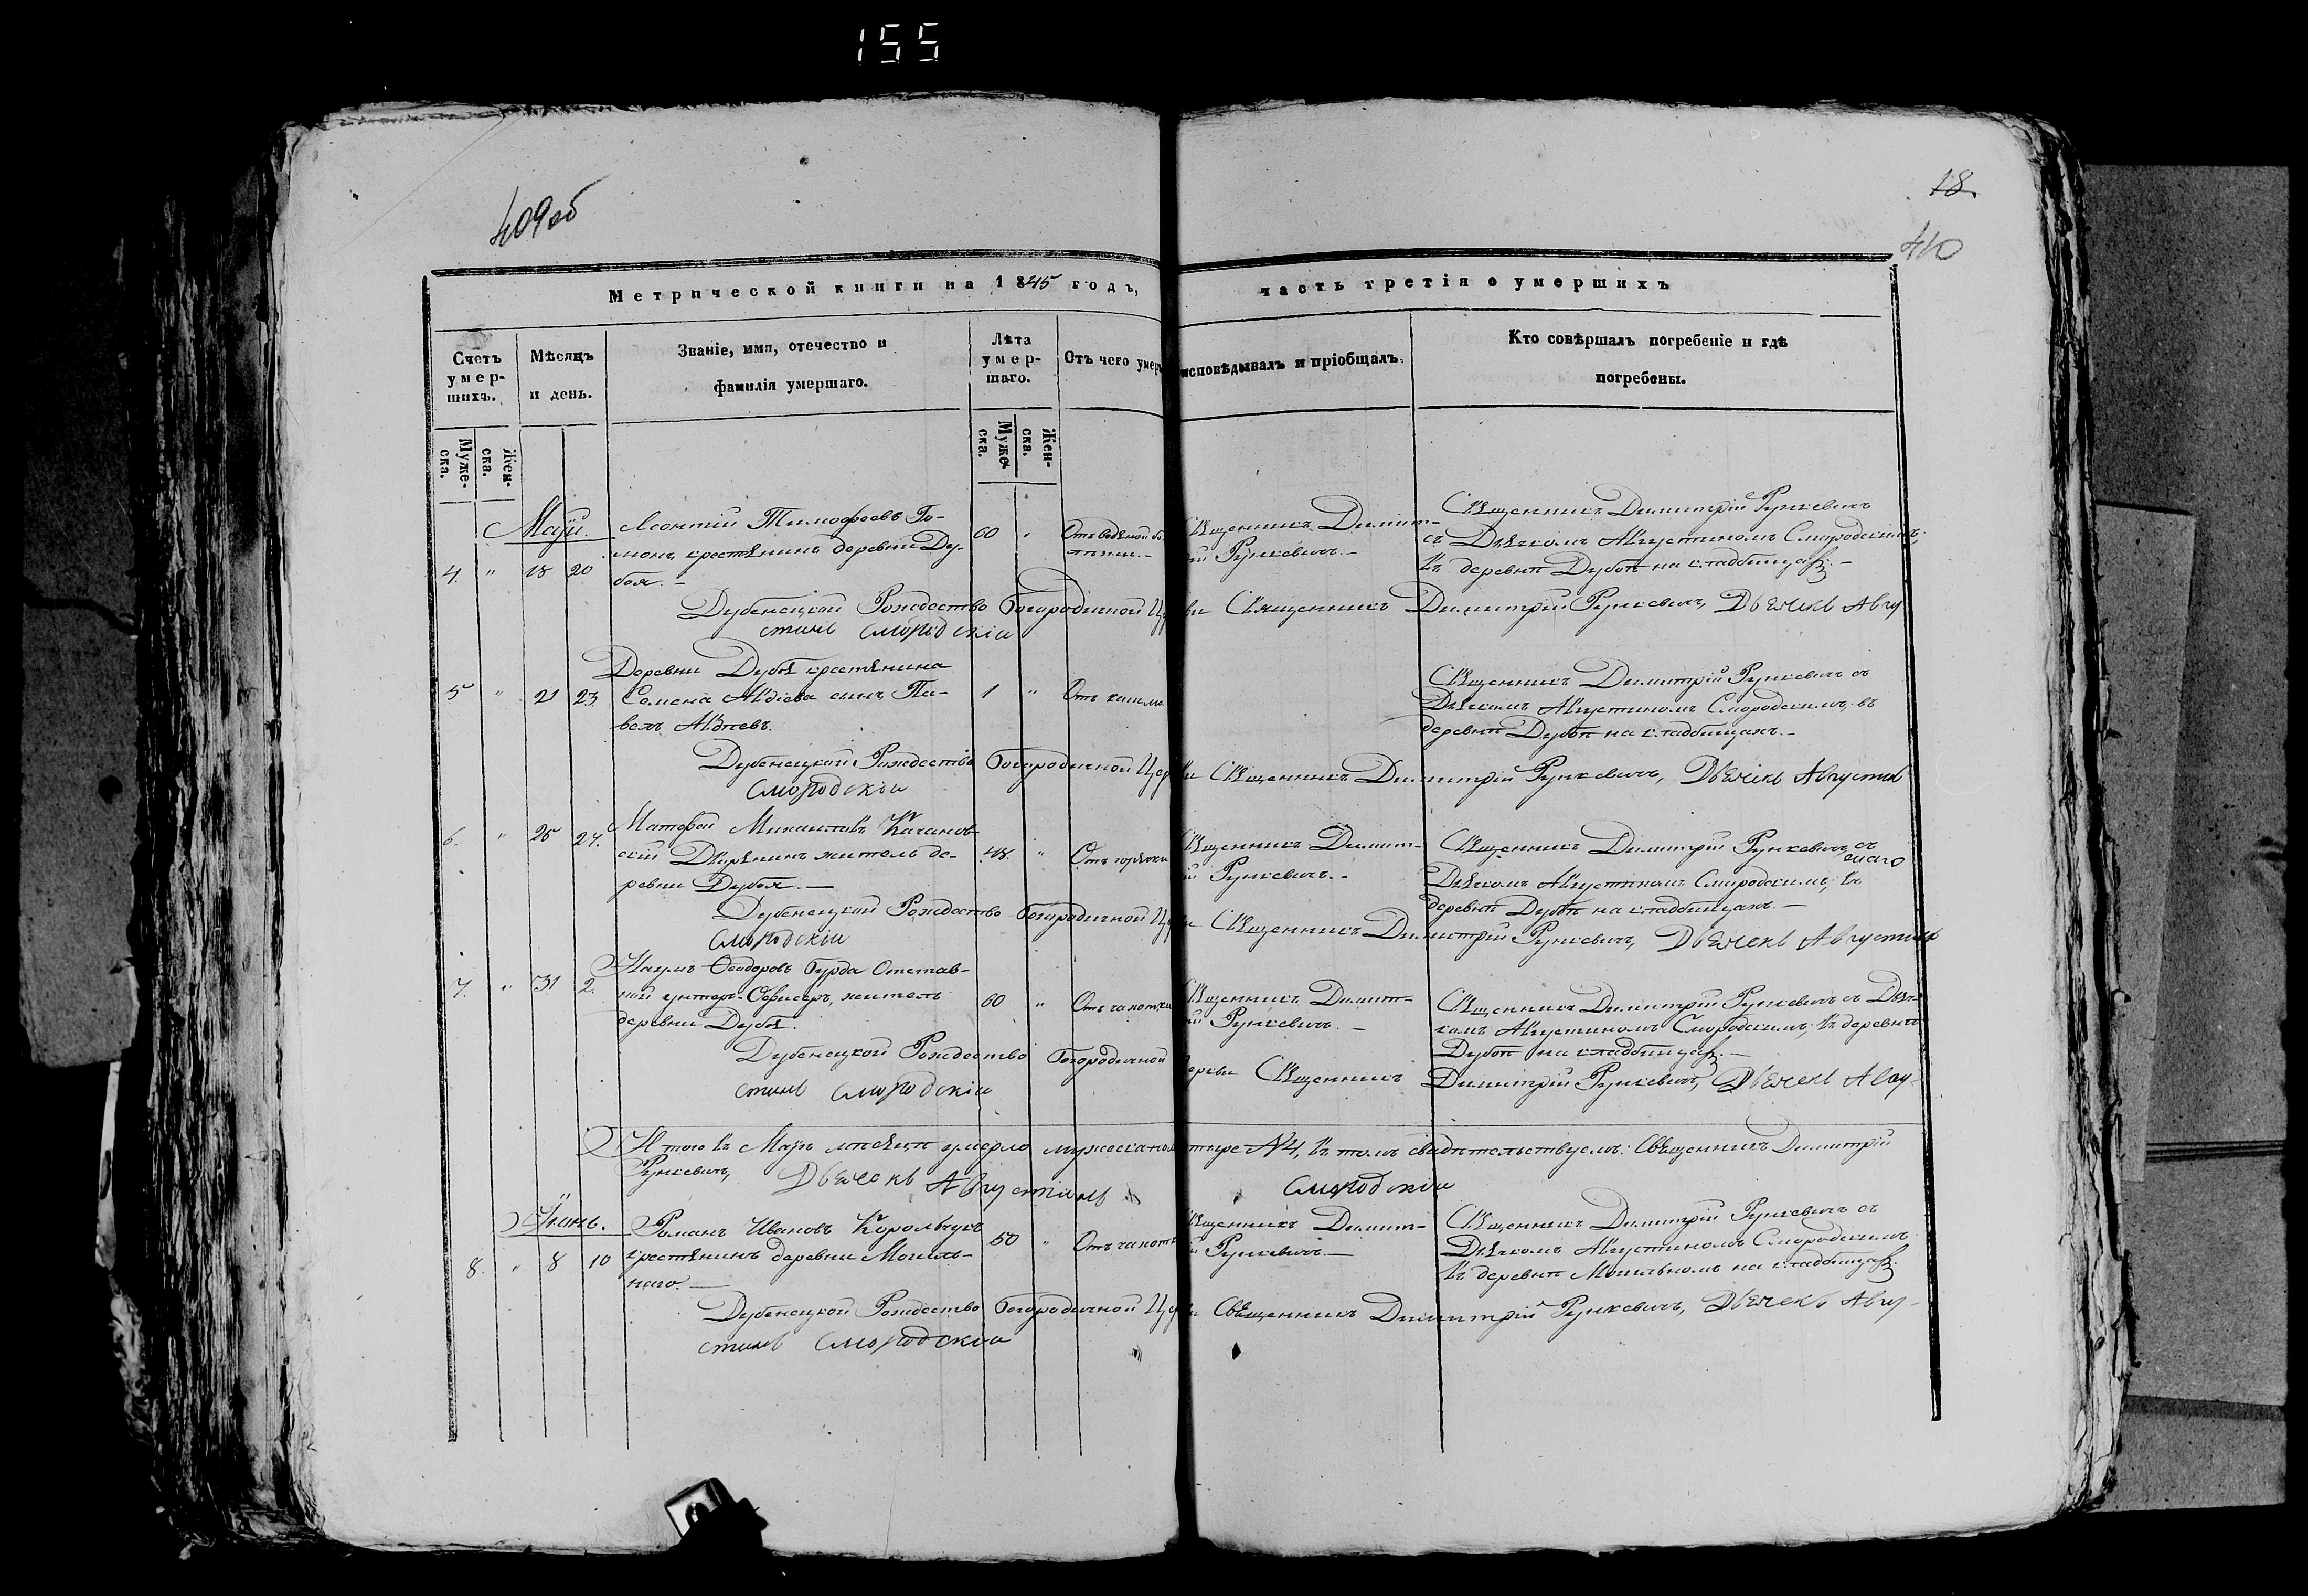 155
409об
18.
410
Метрической книги на 1845 годъ,
часть третія о умершихъ
Счетъ умершихъ.
Мѣсяцъ и день.
Званіе, имя, отечество и фамилія умершаго.
Лѣта умершаго.
Отъ чего умеръ
исповѣдывалъ и пріобщалъ.
Кто совѣршалъ погребеніе и гдѣ погребены.
Мужеска.
Женска.
Мужеска.
Женска.
Маій.
4. " 18 20
Леонтій Тимофеевъ Го-
монъ крестянинъ деревни Ду-
боя. —
60 "
Отъ водяной бо-
лѣзни. —
Священникъ Димит-
ій Рункевичъ. —
Священникъ Димитрій Рункевичъ
съ Дьячкомъ Августиномъ Смородскимъ,
въ деревнѣ Дубоѣ на кладбищахъ. —
Дубенецкой Рождество Богородичной Церкви Священникъ Димитрій Рункевичъ, Дьячекъ Авгу
стинъ Смородскій
5 " 21 23
Деревни Дубоя крестянина
Семена Авдіева сынъ Па-
велъ Авдѣевъ.
1 "
Отъ кашля
Священникъ Димитрій Рункевичъ съ
Дьячкомъ Августиномъ Смородскимъ, въ
деревнѣ Дубоѣ на кладбищахъ. —
Дубенецкой Рождество Богородичной Церкви Священникъ Димитрій Рункевичъ, Дьячекъ Августинъ
Смородскій
6. " 25 27.
Матфей Михаиловъ Качанов-
скій Дворянинъ житель де-
ревни Дубоя. —
48. "
Отъ горячки
Священникъ Димит-
ій Рункевичъ. —
Священникъ Димитрій Рункевичъ съ
Дьячкомъ Августиномъ Смородскимъ, въ
деревнѣ Дубоѣ на кладбищахъ. —
Дубенецкой Рождество Богородичной Церкви Священникъ Димитрій Рункевичъ, Дьячекъ Августинъ
Смородскій
7. " 31 2.
Наумъ Феодоровъ Бурда Отстав-
ной унтеръ-Офицеръ, житель
деревни Дубоя.
60 "
Отъ чахотки
Священникъ Димит-
ій Рункевичъ. —
Священникъ Димитрій Рункевичъ съ Дьяч-
комъ Августиномъ Смородскимъ, въ деревнѣ
Дубоѣ на кладбищахъ. —
Дубенецкой Рождество Богородичной Церкви Священникъ Димитрій Рункевичъ, Дьячекъ Авгу-
стинъ Смородскій
Итого въ Маіѣ мѣсяцѣ умерло мужеска пола четыре №4, въ томъ свидѣтельствуемъ: Священникъ Димитрій
Рункевичъ, Дьячекъ Августинъ Смородскій
Іюнь.
8. " 8 10
Романъ Ивановъ Корольчукъ
крестянинъ деревни Могиль-
наго. —
50 "
Отъ чахотки
Священникъ Димит-
ій Рункевичъ. —
Священникъ Димитрій Рункевичъ съ
Дьячкомъ Августиномъ Смородскимъ
въ деревнѣ Могильномъ на кладбищахъ.
Дубенецкой Рождество Богородичной Церкви Священникъ Димитрій Рункевичъ, Дьячекъ Авгу-
стинъ Смородскій